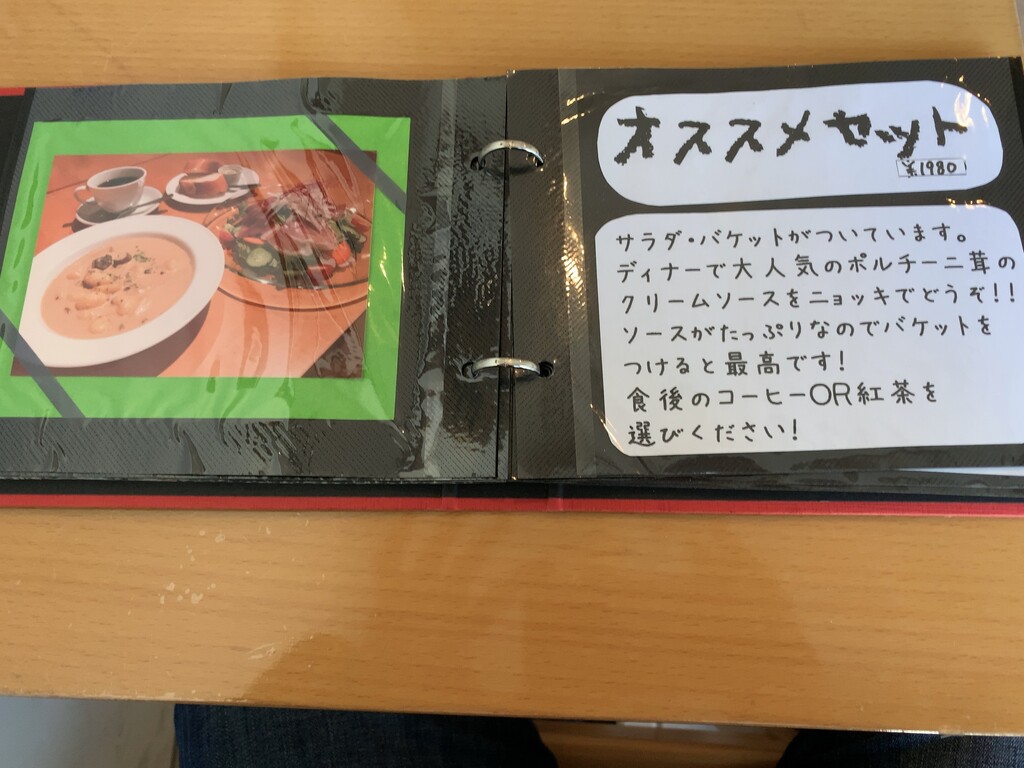 オススメセット
¥1980
サラダ・バケットがついています。
ディナーで大人気のポルチーニ茸の
クリームソースをニョッキでどうぞ!!
ソースがたっぷりなのでバケットを
つけると最高です!
食後のコーヒーOR紅茶を
選びください!